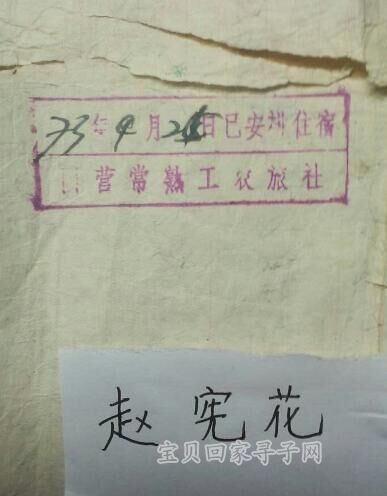 73年4月2日已安排住宿
营常熟工农旅社
赵宪花
宝贝回家寻子网